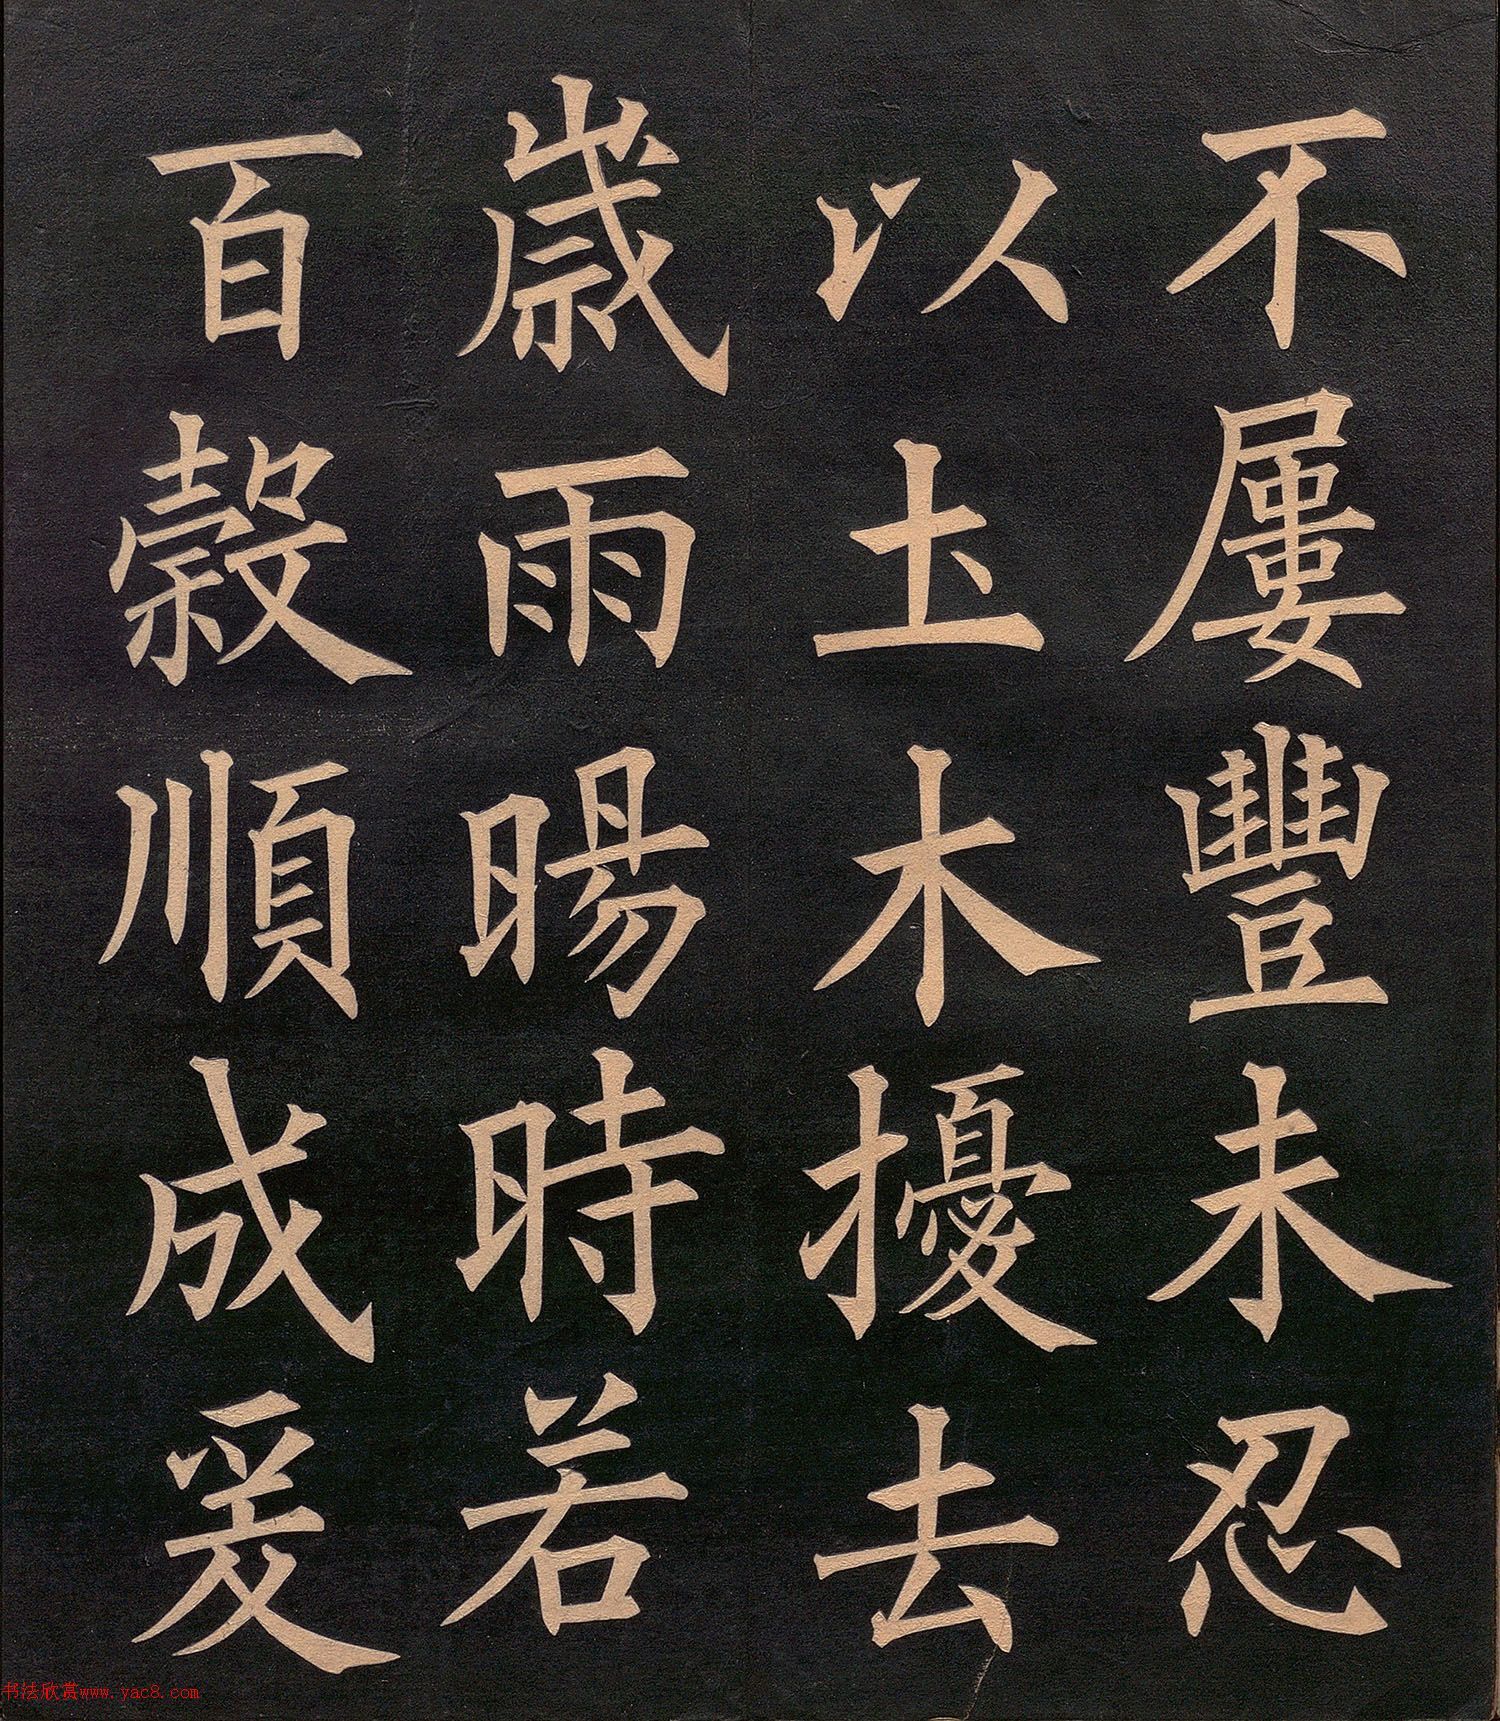 不屢豐未忍
以土木擾去
歲雨暘時若
百穀順成爰
书法欣赏www.yac8.com